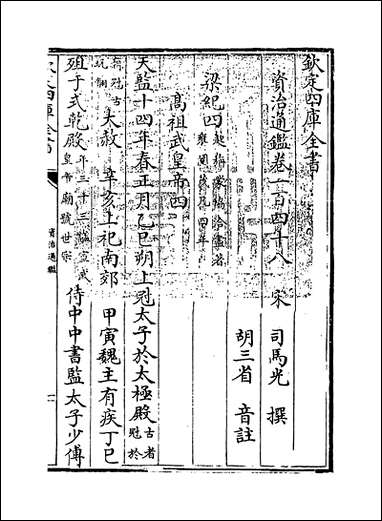 欽定四庫全書
資治通鑑卷一百四十八
宋 司馬光 撰
胡三省 音註
梁紀四
高祖武皇帝四
天監十四年春正月乙巳朔上冠太子於太極殿古者冠於
大赦 辛亥上祀南郊 甲寅魏主有疾丁巳
殂于式乾殿年三十三諡宣武皇帝廟號世宗 侍中中書監太子少傅
資治通鑑